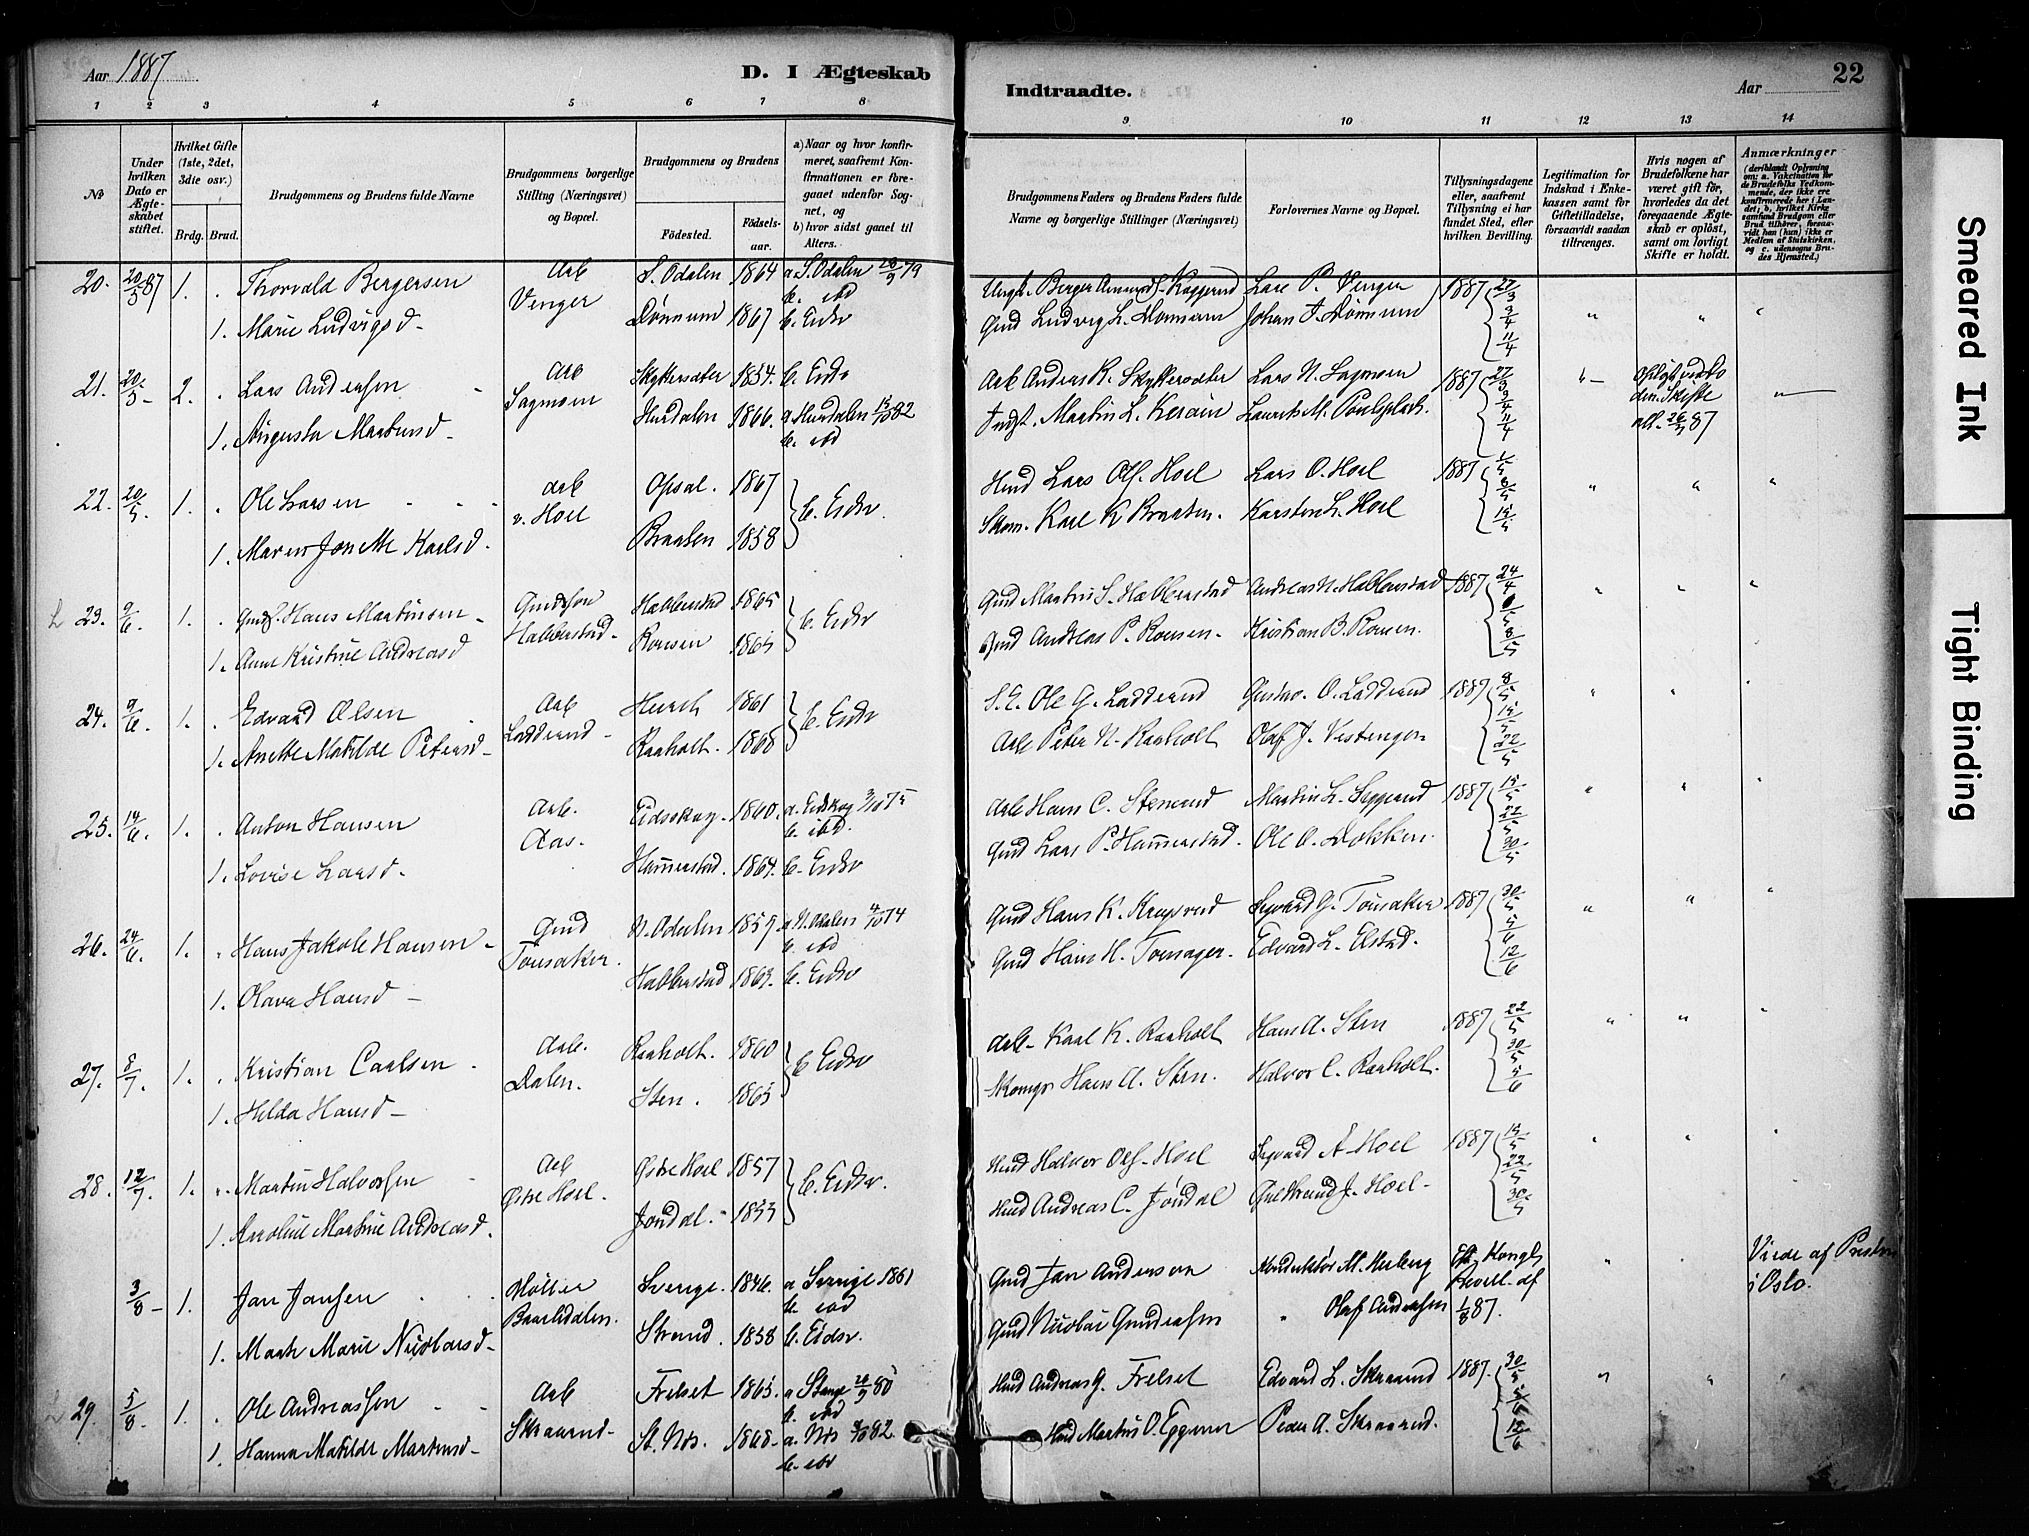 Aar 1887
D. I Ægteskab
Indtraadte.
Aar
22
1 2 3 4 5 6 7 8
9 10 11 12 13 14
No
Under hvilken Dato er Ægteskabet stiftet.
Hvilket Gifte (1ste, 2det, 3die osv.)
Brdg. Brud.
Brudgommens og Brudens fulde Navne
Brudgommens borgerlige Stilling (Næringsvei) og Bopæl.
Brudgommens og Brudens
Fødested.
Fødselsaar.
a) Naar og hvor konfirmeret, saafremt Konfirmationen er foregaaet udenfor Sognet, og
b) hvor sidst gaaet til Alters.
Brudgommens Faders og Brudens Faders fulde Navne og borgerlige Stillinger (Næringsvei)
Forlovernes Navne og Bopæl.
Tillysningsdagene eller, saafremt Tillysning ei har fundet Sted, efter hvilken Bevilling.
Legitimation for Indskud i Enkekassen samt for Giftetilladelse, forsaavidt saadan tiltrænges.
Hvis nogen af Brudefolkene har været gift før, hvorledes da det foregaaende Ægteskab er opløst, samt om lovligt Skifte er holdt.
Anmærkninger
(deriblandt Oplysning om: a. Vakcination for de Brudefolks Vedkommende, der ikke ere konfirmerede her i Landet; b. hvilket Kirkesamfund Brudgom eller Brud tilhører, forsaavidt han (hun) ikke er Medlem af Statskirken, og c. udensogns Brudes Hjemsted.)
20. 20/5 87 1. " Thorvald Bergersen Arb S. Odalen 1864 a S. Odalen 28/9 79 Lars P. Venger 1887 27/3
Venger b. ibd
1. Marie Ludvigsd. Dønnum 1867 b. Eidsv Gmd Ludvig L. Dønnum Johan J. Dønnum 3/4
11/4
21. 20/5 2. " Lars Andersen Arb Skyttersæter 1854. b. Eidsv Arb Anders K. Skyttersæter Lars N. Sagmoen 1887 27/3
Sagmoen Skifte
1. Augusta Martinsd. Hurdalen 1866. a Hurdalen 15/10 82 Martin L. 3/4
b. ibd 11/4
22. 20/5. 1. " Ole Larsen Arb Opsal. 1867 b. Eidsv. Hmd Lars Ols. Hoel Lars O. Hoel 1887 1/5
v. Hoel 8/5
1. Maren Jonette Karlsd. Braaten 1858 Skom. Karl K Braaten. Karsten L. Hoel 15/5
23. 9/6. 1. " Gmds. Hans Martinsen Gmdsøn Habberstad 1865 b. Eidsv Gmd Martin S. Habberstad Andreas N. Habberstad 1887 24/4
Habberstad.
1. Anne Kristine Andreasd Ronsen 1865 Gmd Andreas P. Ronsen. Kristian B. Ronsen. 8/5
24. 9/6. 1. " Edvard Olsen Arb 1861 b. Eidsv Ole G. Ladderud Gustav O. Ladderud 1887 8/5
Ladderud 15/5
1. Anette Matilde Petersd. Raaholt. 1868 Arb Peter N. Raaholt Olaf J. Vestengen 22/5
25. 14/6. 1. " Anton Hansen Arb. Eidsskog. 1860. a. Eidskog 3/10 75 Arb Hans C. Stenerud Martin L. Seggerud 1887 15/5
Aas. b. ibd. 22/5
1. Lovise Larsd. Hammerstad. 1864. b. Eidsv Gmd Lars P. Hammerstad. Ole O. Dokken. 30/5
26. 24/6. 1. " Hans Jakob Hansen Gmd N. Odalen 1859 a N. Odalen 4/10 74 Gmd Hans K. Sigvard G. Tønsaker 1887 30/5
Tønsaker. b. ibd 5/6
1. Olava Hansd. Habberstad 1863. b. Eidsv Gmd Hans H. Tønsager. Edvard L. Elstad. 12/6
27. 8/7. 1. " Kristian Carlsen Arb. Raaholt. 1860 b Eidsv Arb. Karl K. Raaholt Hans A. Sten 1887 22/5
Dalen. 30/5
1. Helda Hansd. Sten. 1865 Skomgr Hans A. Sten. Halvor C. Raaholt. 5/6
28. 12/7. 1. " Martin Halvorsen Arb Østre Hoel 1857 b. Eidsv. Hmd Halvor Ols. Hoel Sigvard A Hoel 1887 15/5
Østre Hoel. 22/5
1. Karoline Martine Andreasd. Jøndal. 1853 Hmd Andreas C. Jøndal Guldbrand J. Hoel. 30/5
3/8 1. Jan Jansen Møller Sverige. 1846. a Sverige 1861 Gmd Jan Anderson Konduktør M. Herberg Eft. Kongl Viede af Presten
b. ibd Bevill. af i Oslo.
1. Marte Marie Nicolaisd. Strand. 1858 b. Eidsv. Gmd Nicolai Gundersen " Olaf Andersen 1/8 87.
29. 5/8. 1. " Ole Andreassen Arb Frelset 1865. a Stange 26/9 80 Hmd Andreas G. Frelset Edvard L. Skraarud 1887. 30/5
Skraarud. b. ibd 5/6
1. Hanna Matilde Martinsd. St. Næs. 1868. a. Næs 8/10 82 Hmd Martin O. Eggum Peder A. Skraarud. 12/6
b. ibd
Smeared Ink
Tight Binding